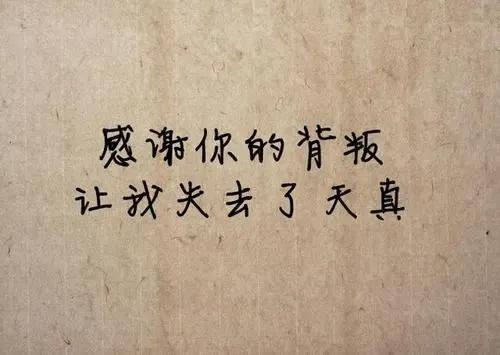 感谢你的背叛
让我失去了天真